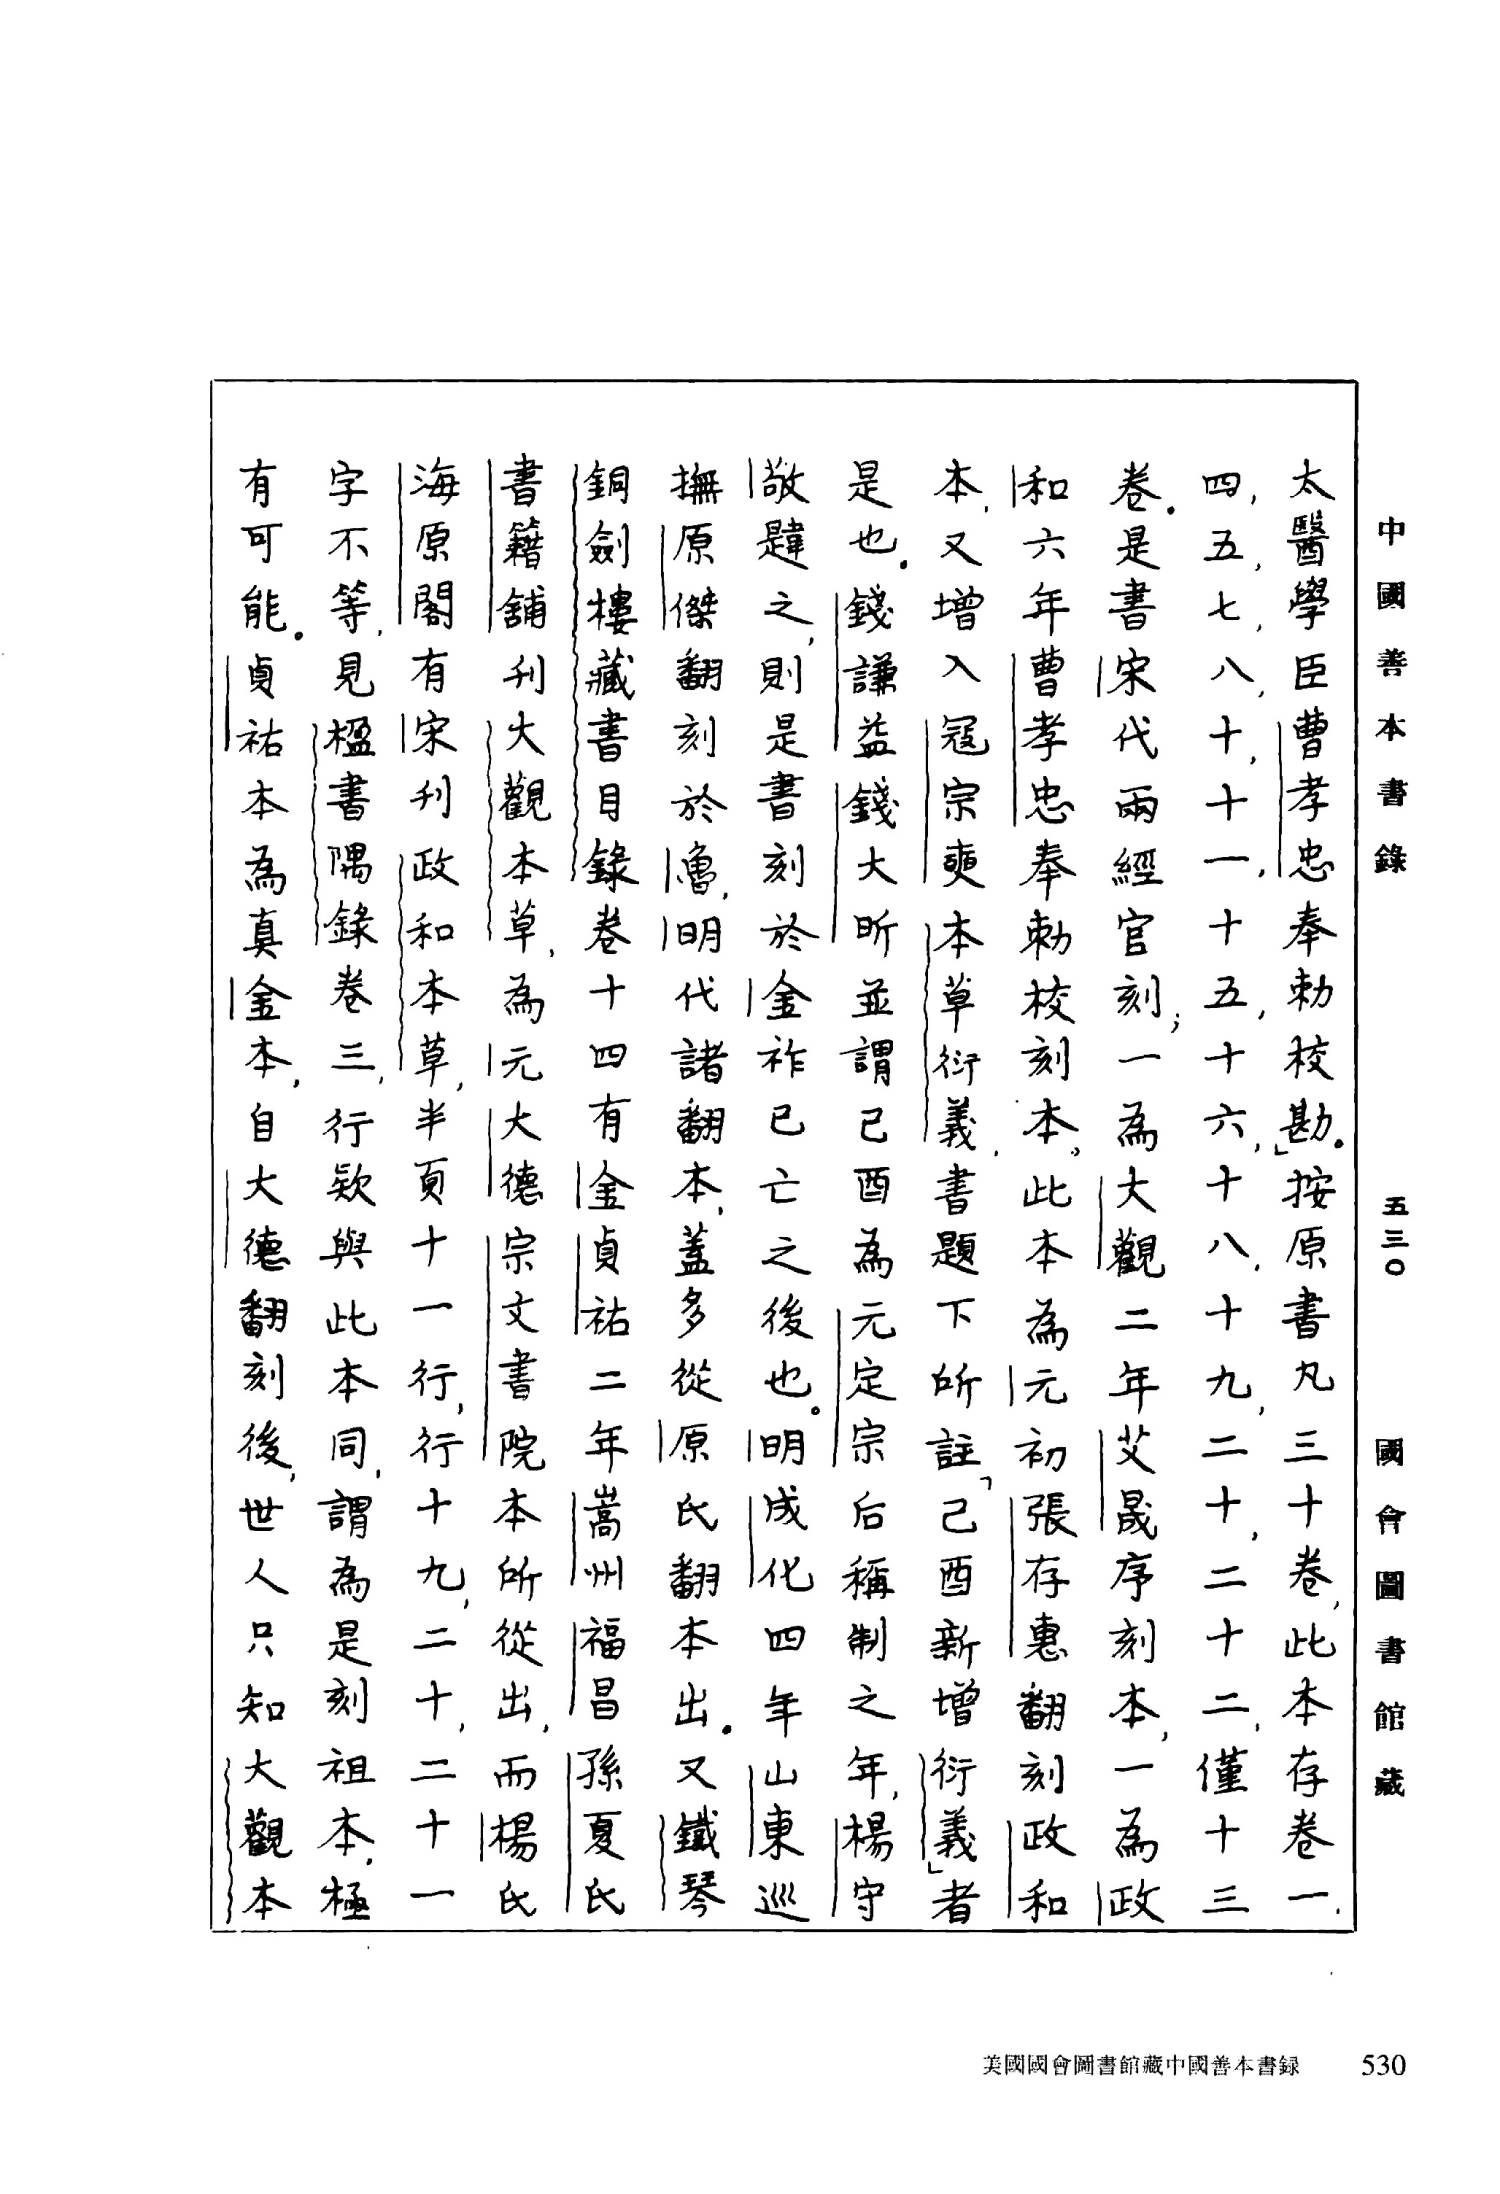 中國善本書錄　五三〇　國會圖書館藏
太醫學臣曹孝忠奉勅校勘」。按原書凡三十卷，此本存卷一，
四，五，七，八，十，十一，十五，十六，十八，十九，二十，二十二，僅十三
卷。是書宋代兩經官刻；一為大觀二年艾晟序刻本，一為政
和六年曹孝忠奉勅校刻本。此本為元初張存惠翻刻政和
本，又增入冠宗奭本草衍義，書題下所註「己酉新增衍義」者
是也。錢謙益錢大昕並謂己酉為元定宗后稱制之年，楊守
敬韙之，則是書刻於金祚已亡之後也。明成化四年山東巡
撫原傑翻刻於魯，明代諸翻本，蓋多從原氏翻本出。又鐵琴
銅劍樓藏書目錄卷十四有金貞祐二年嵩州福昌孫夏氏
書籍舖刊大觀本草，為元大德宗文書院本所從出，而楊氏
海原閣有宋刊政和本草，半頁十一行，行十九，二十，二十一
字不等，見楹書隅錄卷三，行款與此本同，謂為是刻祖本，極
有可能。貞祐本為真金本，自大德翻刻後，世人只知大觀本
美國國會圖書館藏中國善本書録　530